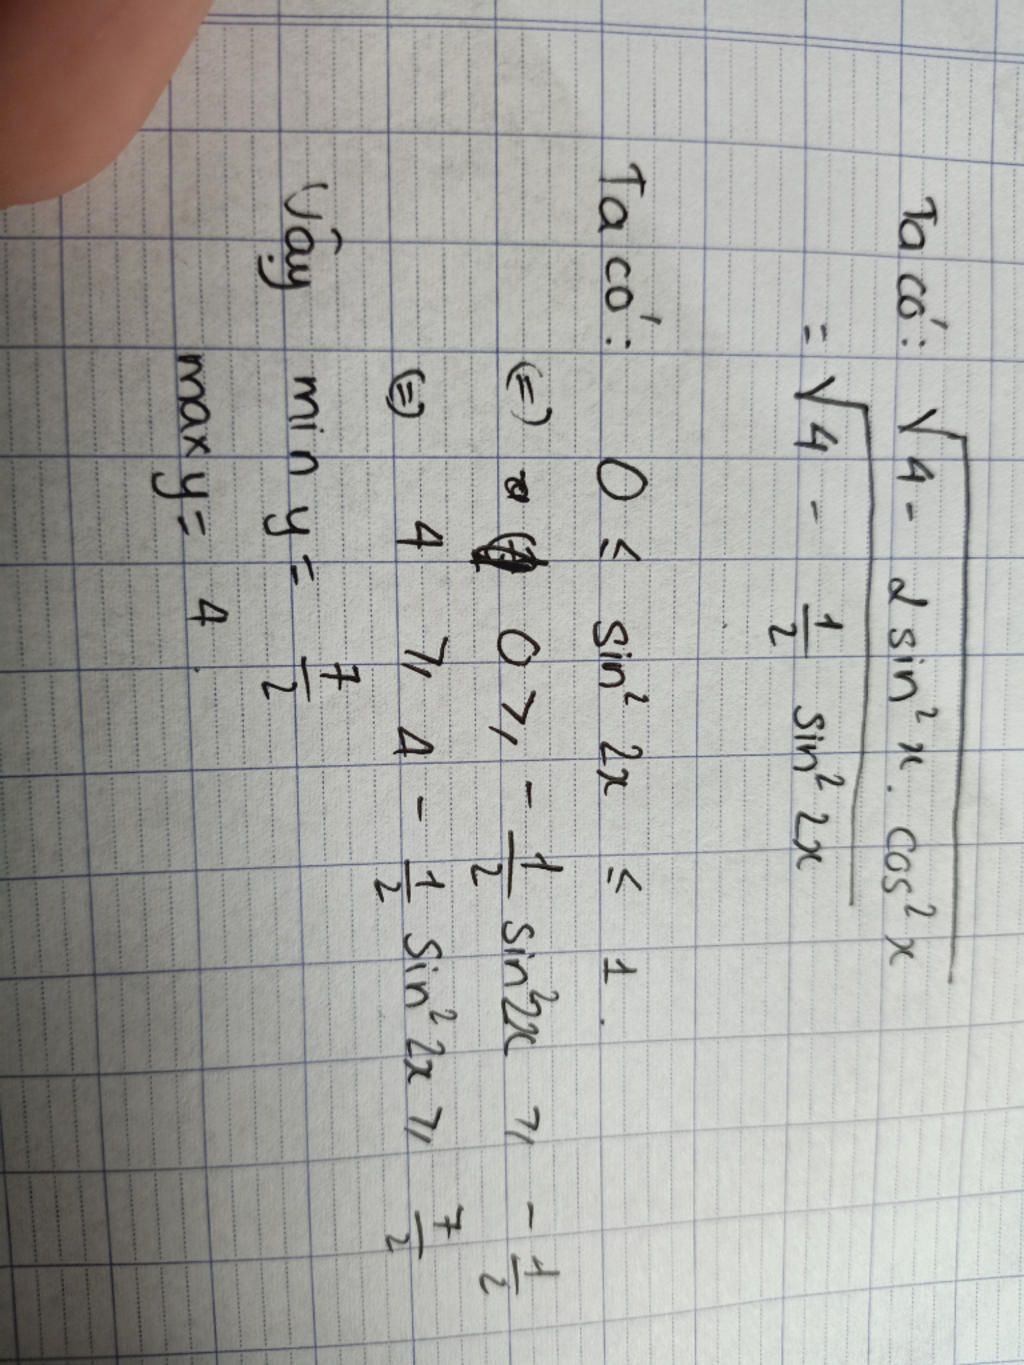 Ta có: √4 - 2 sin² x . cos² x
= √4 - 1/2 sin² 2x
Ta có: 0 ≤ sin² 2x ≤ 1.
(=) 0 ⩾ - 1/2 sin² 2x ⩾ - 1/2
(=) 4 ⩾ 4 - 1/2 sin² 2x ⩾ 7/2
Vậy min y = 7/2
max y = 4.